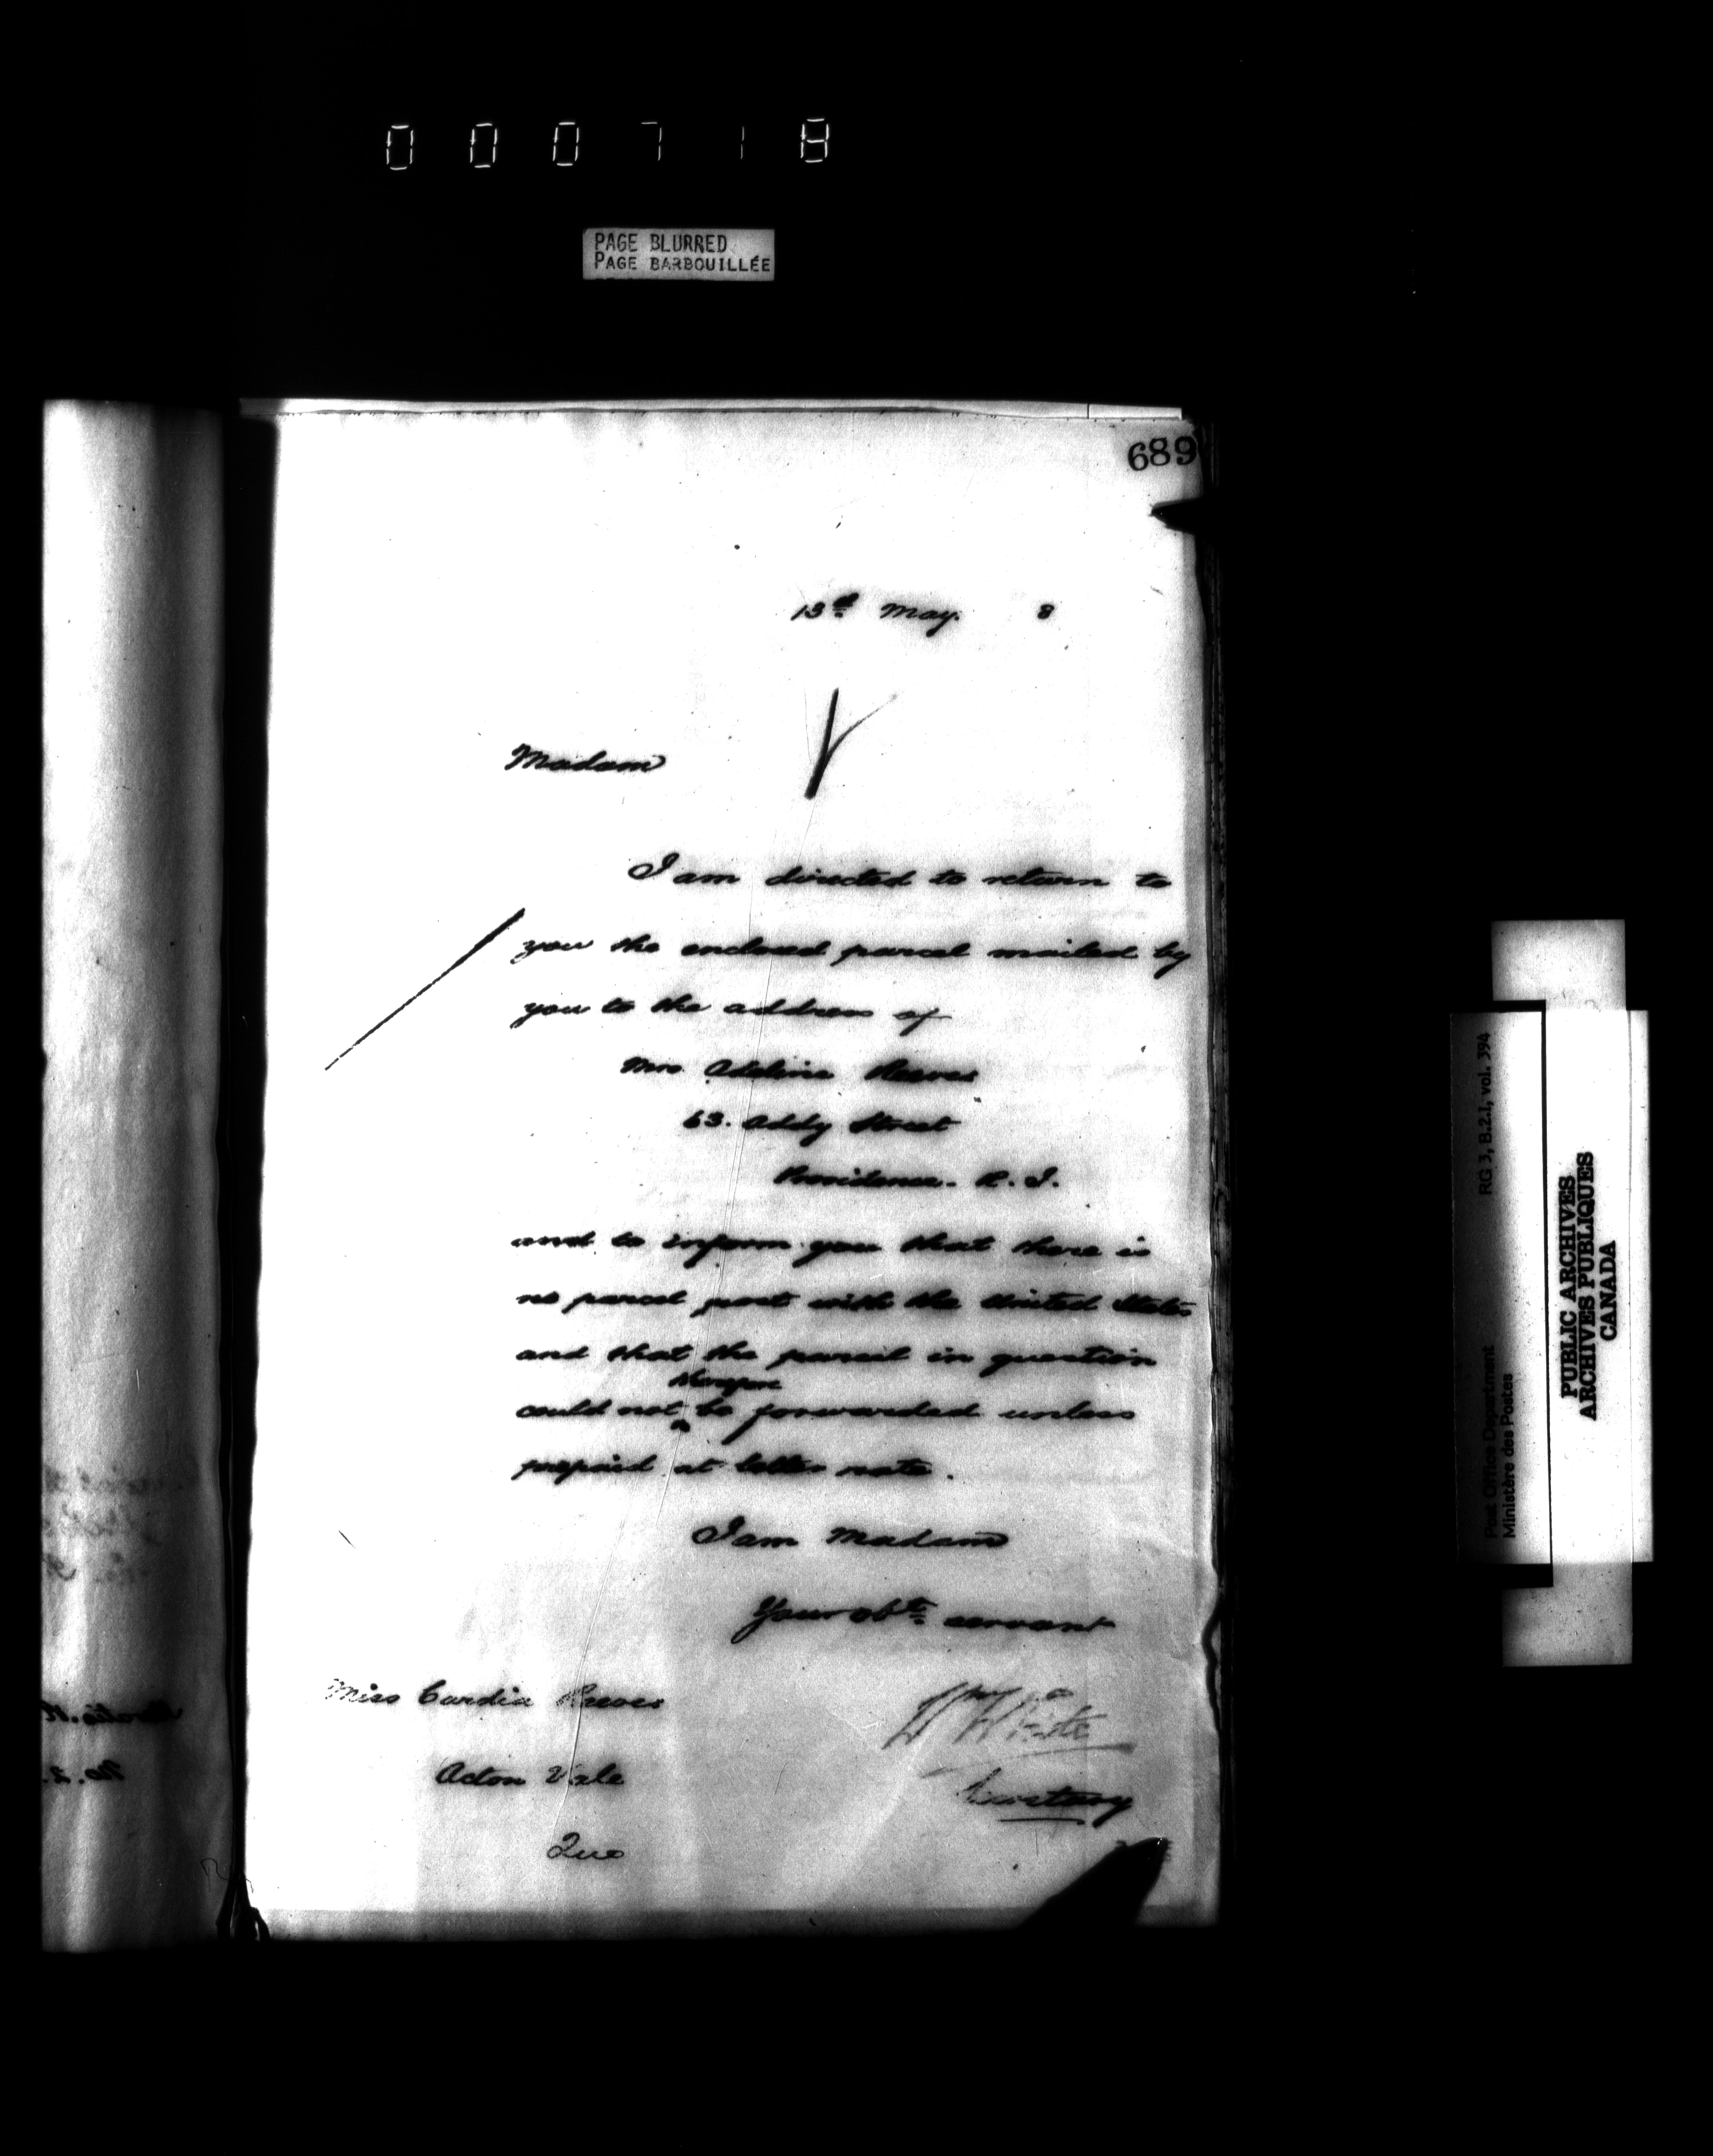 000718
PAGE BLURRED
PAGE BARBOUILLÉE
689
13th May. 8
Madam
I am directed to return to
you the enclosed parcel mailed by
you to the address of
Mrs Adeline Reeves
63. Addy Street
Providence. R. I.
and to inform you that there is
no parcel post with the United States
and that the parcel in question
therefore
could not be forwarded unless
prepaid at letter rate.
I am Madam
Your obt. servant
Miss Cordia Reeves
Acton Vale
Que
Wm White
Secretary
RG 3, B.2.1, vol. 394
Post Office Department
Ministère des Postes
PUBLIC ARCHIVES
ARCHIVES PUBLIQUES
CANADA